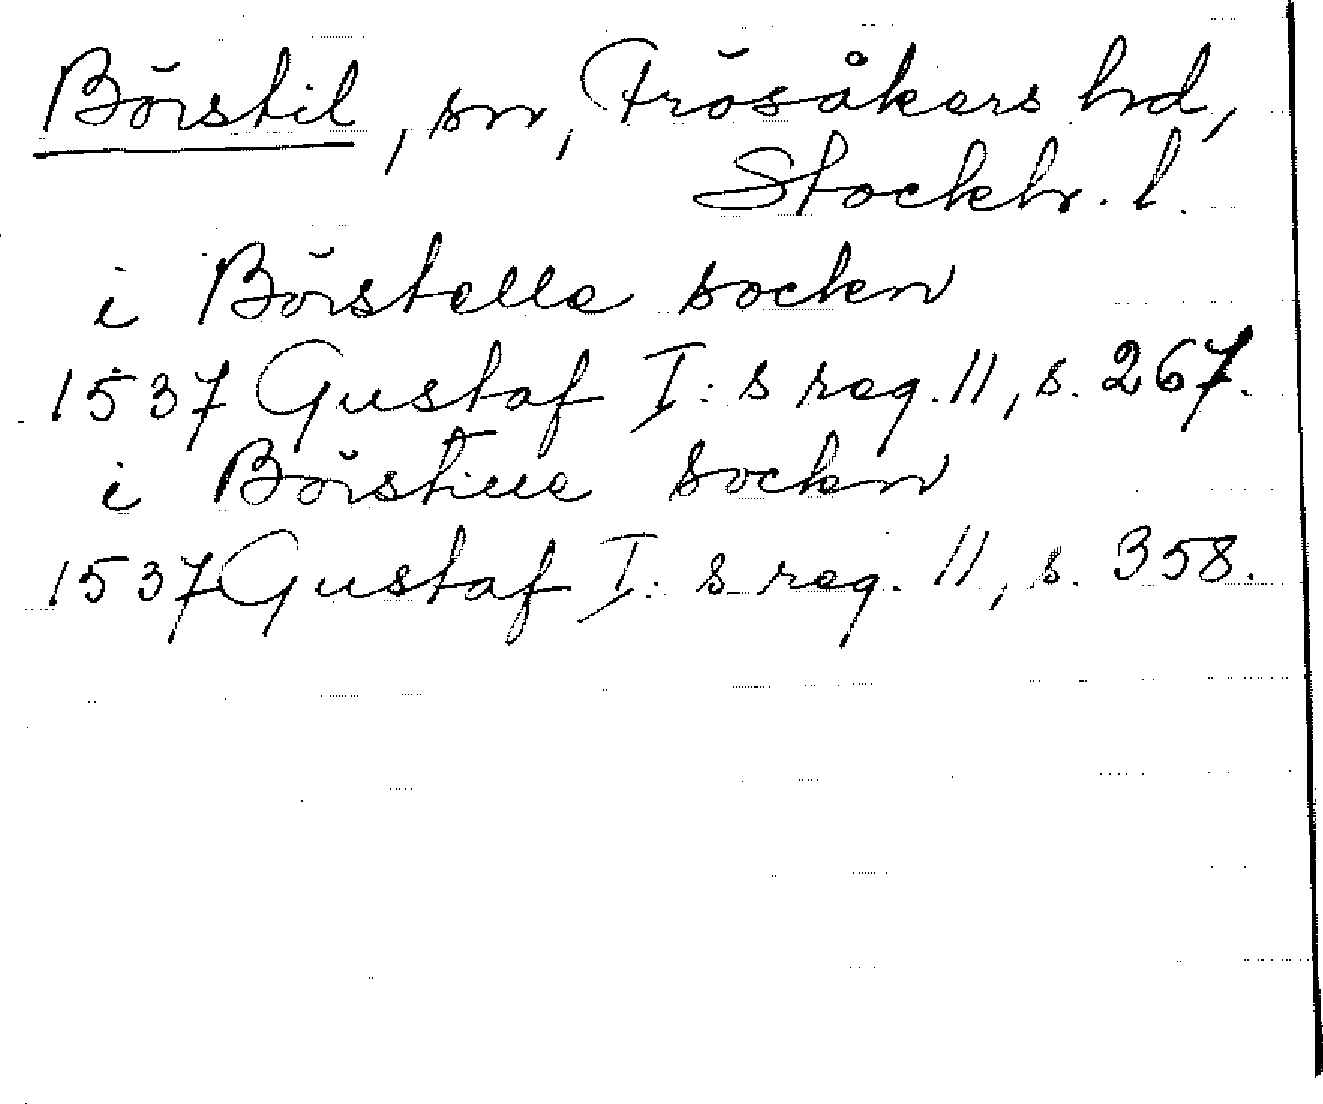 Börstil, sn, Frösåkers hd,
Stockh. l.
i Börstelle sockn
1537 Gustaf I:s reg. 11, s. 267.
i Börstille sockn
1537 Gustaf I:s reg. 11, s. 358.